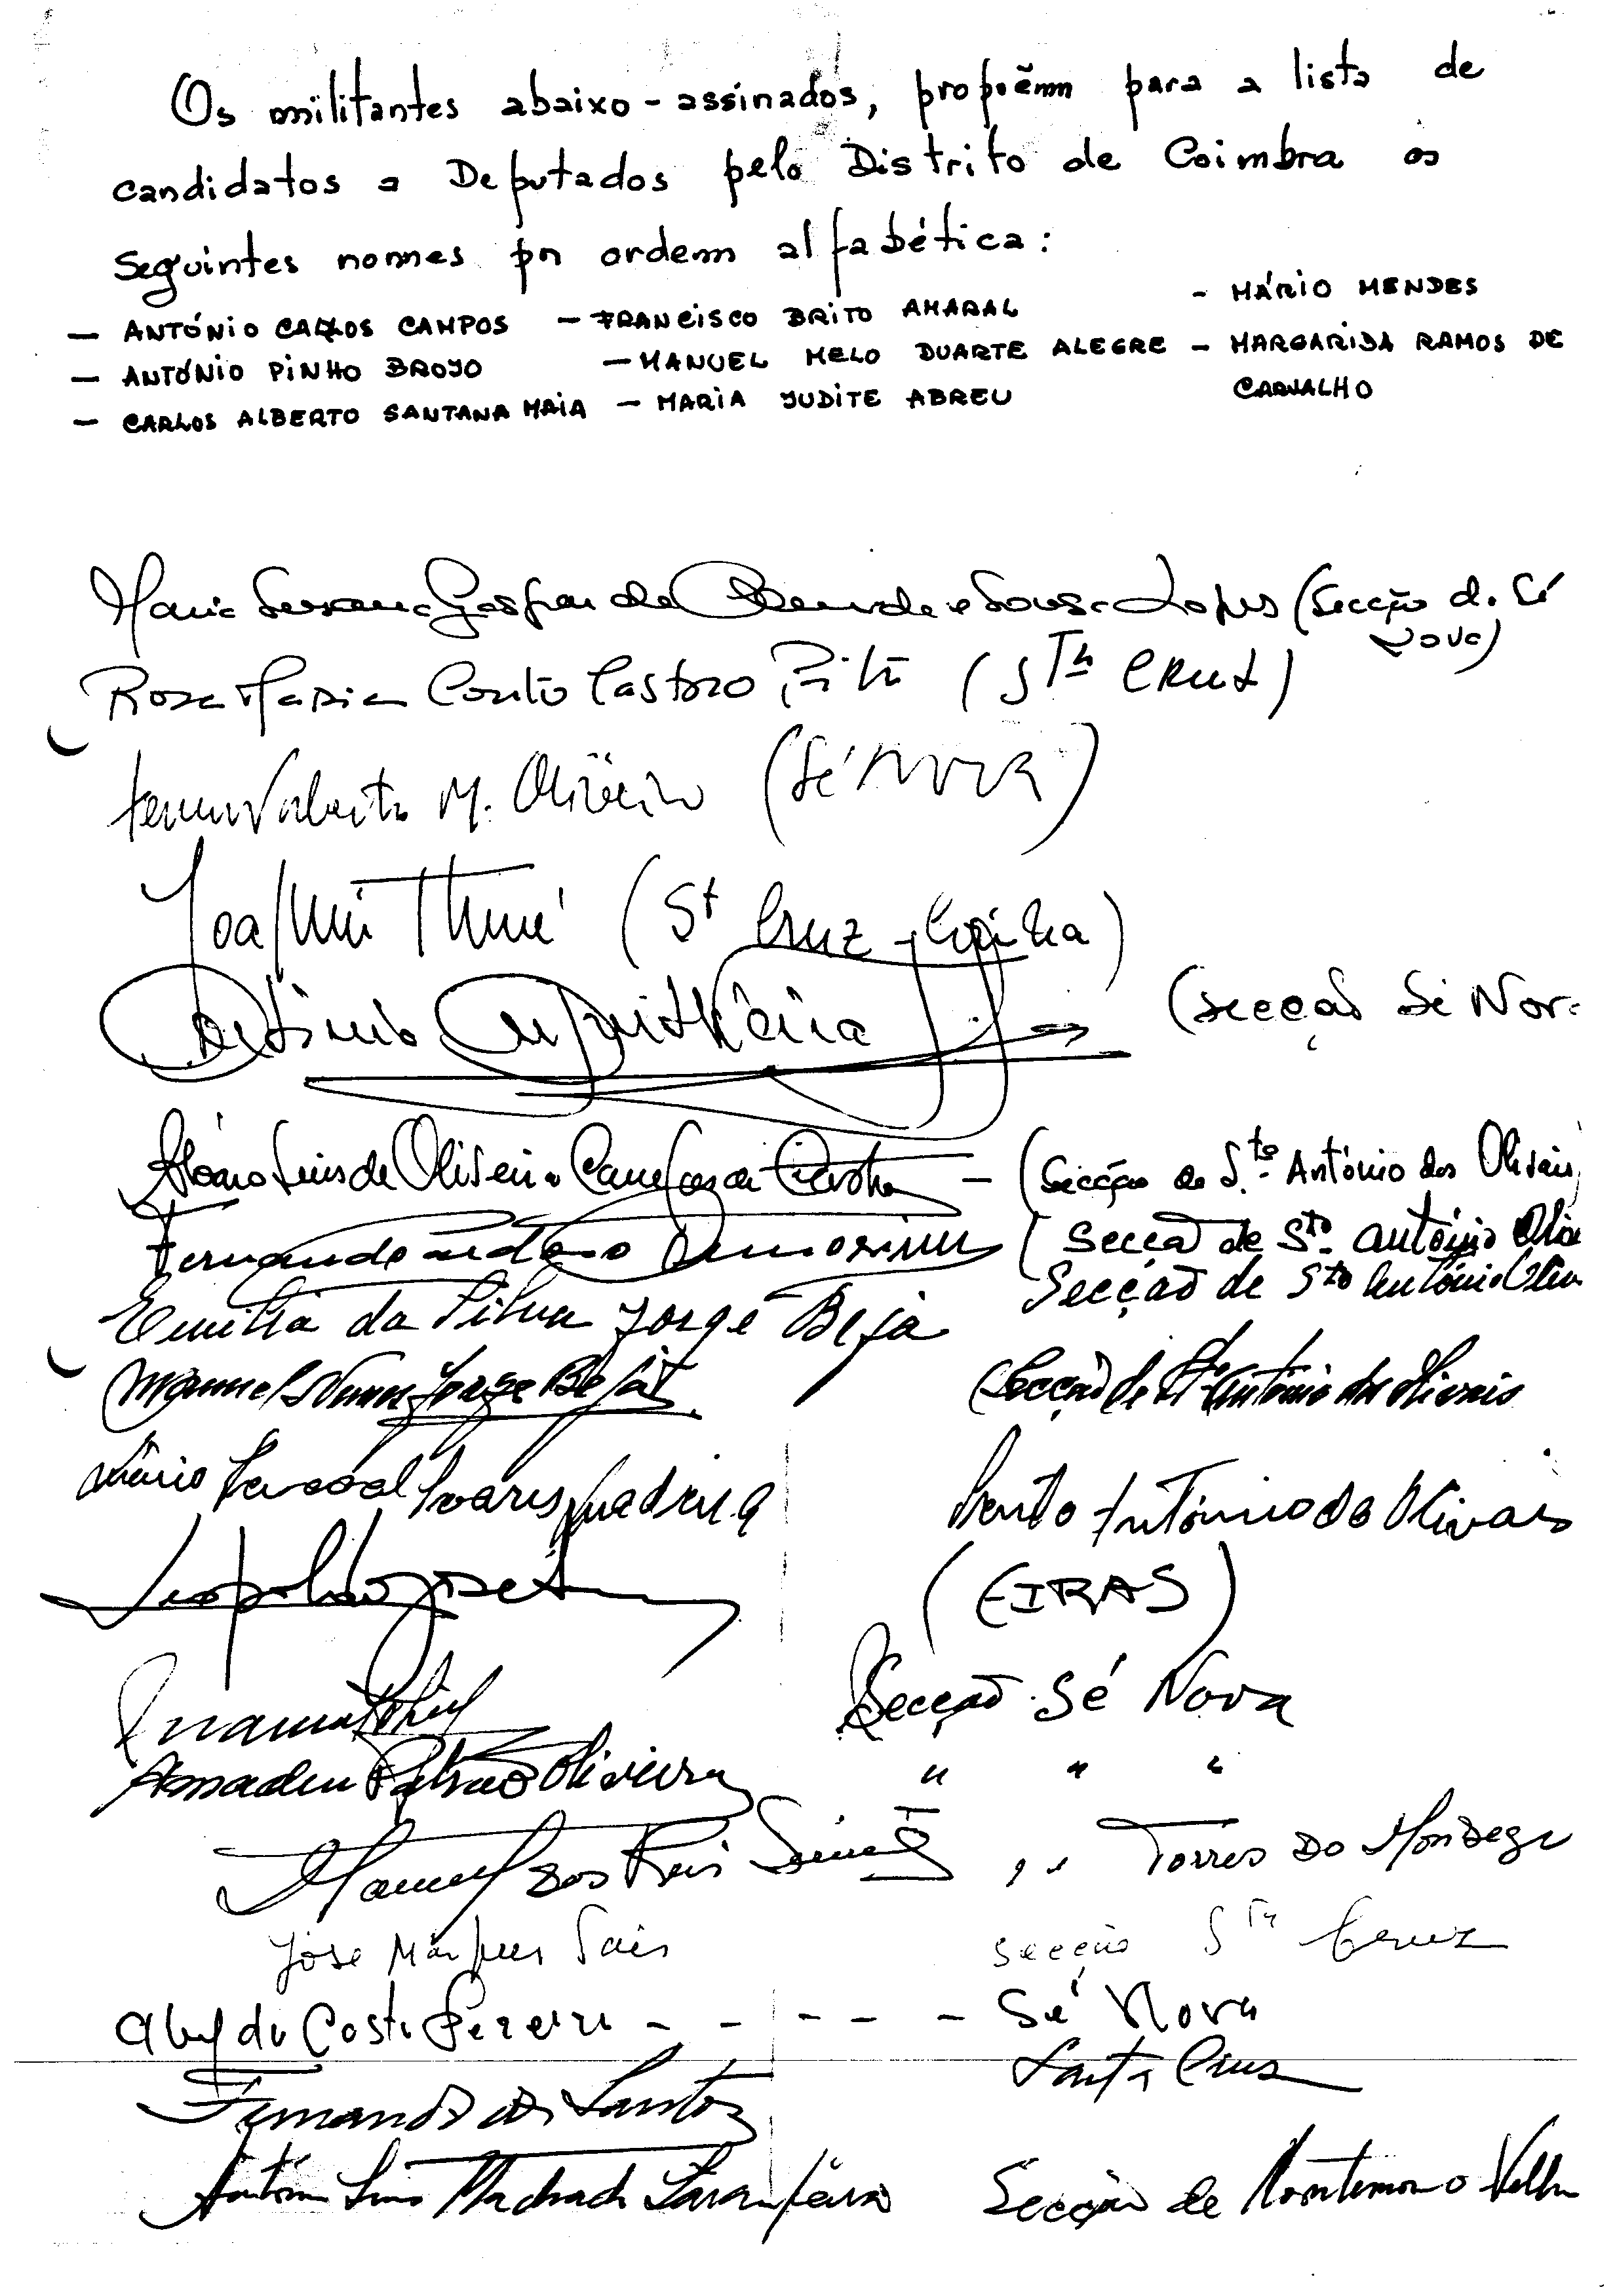 Os militantes abaixo-assinados, propoẽm para a lista de
candidatos a Deputados pelo Distrito de Coimbra os
seguintes nomes por ordem alfabética:
— ANTÓNIO CARLOS CAMPOS — FRANCISCO BRITO AMARAL - MÁRIO MENDES
— ANTÓNIO PINHO BROJO — MANUEL MELO DUARTE ALEGRE - MARGARIDA RAMOS DE
CARVALHO
— CARLOS ALBERTO SANTANA MAIA — MARIA JUDITE ABREU
Maria Gaspar de e Sousa Lopes (Secção de Sé
Nova)
Rosa Maria Couto Castoro (STª CRUZ)
M. Oliveira (Sé NOVA)
Joaquim (St Cruz)
António (Secção Sé Nova
Luis de Oliveira Castro — (Secção de S.to António dos Olivais,
Fernando Amorim (Secção de Sto António Oliva
Emilia da Silva Jorge Beja Secção de Sto António Oliv
Manuel Nunes Jorge Beja Secção de Stº António dos Olivais
Mário Soares Santo António dos Olivais
Leopoldo (EIRAS)
Secção Sé Nova
Amadeu Oliveira " " "
Manuel dos Reis " Torres do Mondego
José Marques Pais secção STª Cruz
Abel da Costa Pereira - - - - - Sé Nova
Fernando dos Santos Santa Cruz
António Machado Secção de Montemor-o-Velho